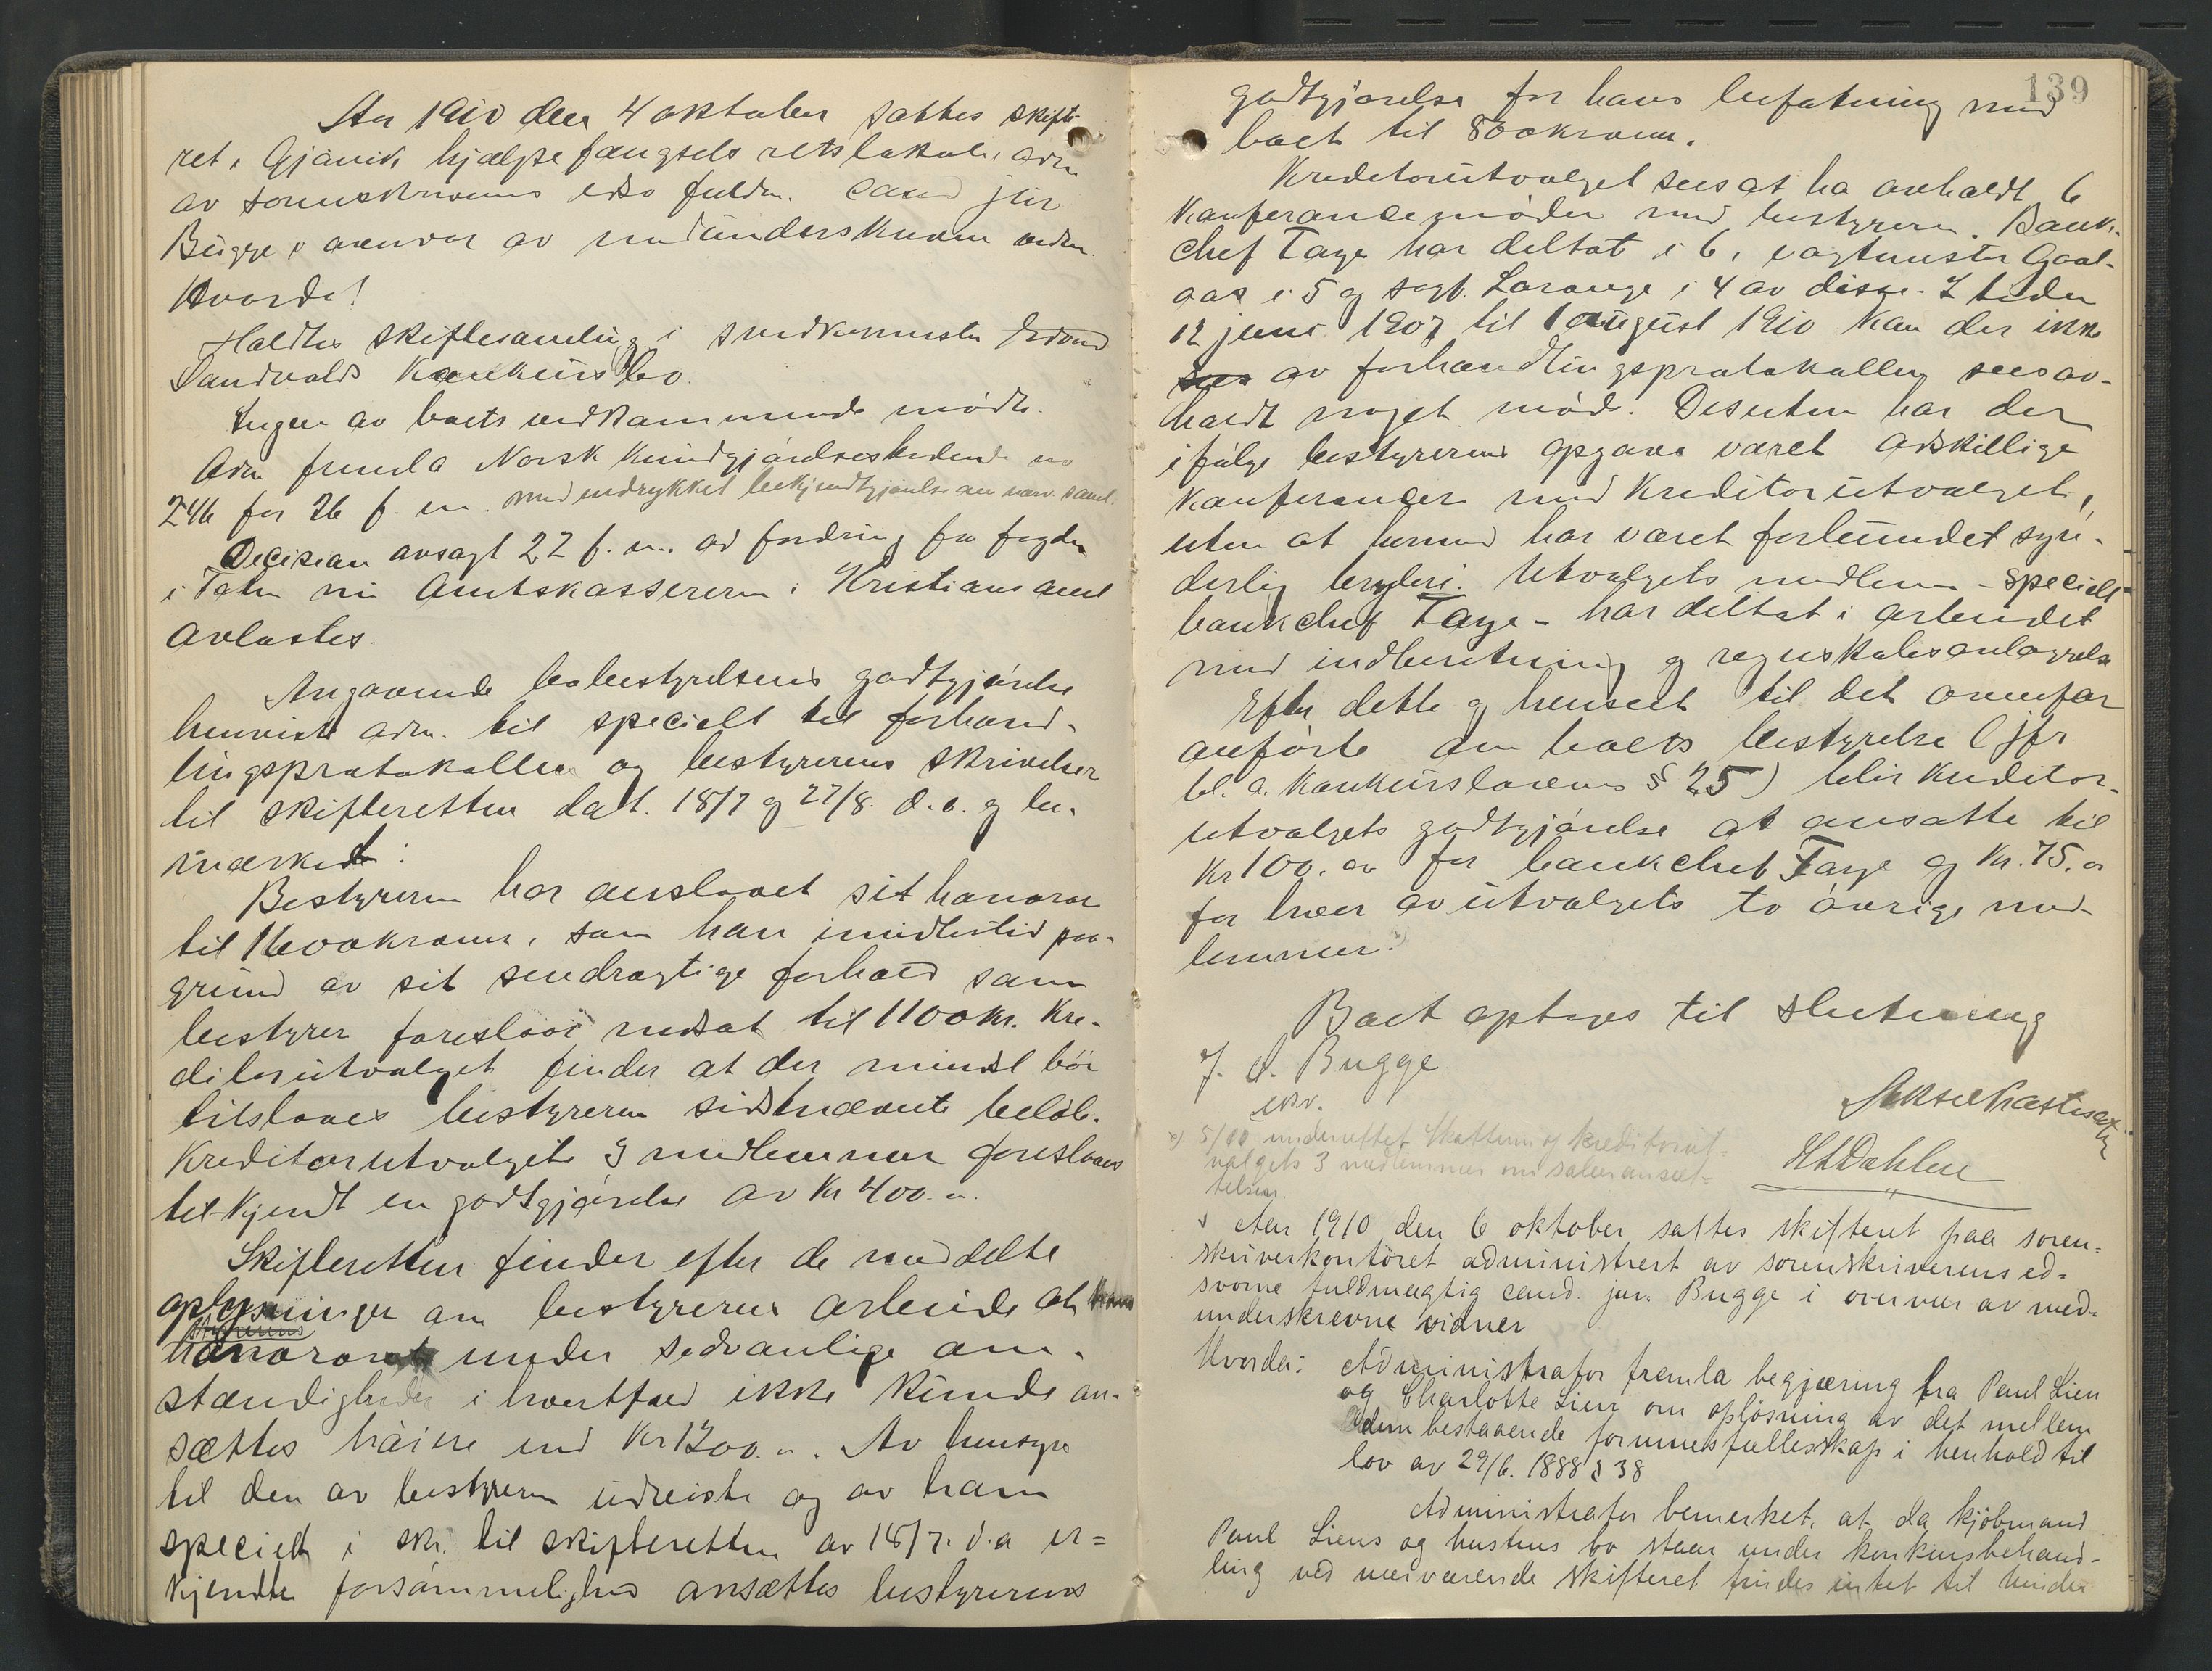 Aar 1910 den 4 oktober sattes skifte-
ret i Gjøvik hjælpefængsels retslokale, adm
av sorenskriverens edsv fuldm. cand jur
Bugge i overvær av medunderskrevne vidner.
Hvorda!
Holdtes skiftesamling i snedkermester Edvard
Sandvolds konkursbo.
Ingen av boets vedkommende mødte.
Adm fremla Norsk Kundgjørelsestidende no
246 for 26 f. m. med indrykket bekjendtgjørelse om nærv. saml.
Decision avsagt 22 f. m. ad fordring fra fogden
i Toten nu Amtskassereren i Kristians amt
avlæstes.
Angaaende bobestyrelsens godtgjørelse
henviste adm. til specielt til forhand-
lingsprotokollen og bestyrerens skrivelser
til skifteretten dat. 18/7 og 27/8. d.a. og be-
mærket:
Bestyreren har anslaaet sit honorar
til 1600 kroner, som han imidlertid paa-
grund av sit sendrægtige forhold som
bestyrer foreslaar nedsat til 1100 kr. Kre-
ditorutvalget finder at der mindst bør
tilstaaes bestyreren sidstnævnte beløb.
Kreditorutvalgets 3 medlemmer foreslaaes
til-kjendt en godtgjørelse av Kr 400.-.
Skifteretten finder efter de meddelte
oplysninger om bestyrerens arbeide at
honoraret under sedvanlige om-
stændigheder i hvertfald ikke kunde an-
sættes høiere end Kr 1200.-. Av hensyn
til den av bestyreren udviste og av ham
specielt i skr. til skifteretten av 18/7. d.a er=
kjendte forsømmelighed ansættes bestyrerens
139
godtgjørelse for hans befatning med
boet til 800 kroner.
Kreditorutvalget sees at ha avholdt 6
Konferancemøder med bestyreren. Bank-
chef Tage har deltat i 6, vagtmester Gaal-
aas i 5 og sagf. Lorange i 4 av disse. I tiden
12 juni 1907 til 1 august 1910 kan der ikke
sees av forhandlingsprotokollen sees av-
holdt noget møde. Desuten har der
ifølge bestyrerens opgave været adskillige
konferancer med kreditorutvalget,
uten at hermed har været forbundet syn-
derlig bryderi. Utvalgets medlem - specielt
bankchef Tage - har deltat i arbeidet
med indberetning og regnskabsavlæggelse
Efter dette og henseet til det ovenfor
anførte om boets bestyrelse (jfr
bl. a. Konkurslovens § 25) blir kreditor-
utvalgets godtgjørelse at ansætte til
Kr 100.00 for bankchef Tage og Kr. 75.00
for hver av utvalgets to øvrige med-
lemmer x)
Boet optages til slutning
J. A. Bugge
edsv.
Aksel Kastestad
H Dahlen
x) 5/10 underrettet Skattum og kreditorut-
valgets 3 medlemmer om salæransæt-
telsen.
Aar 1910 den 6 oktober sattes skifteret paa soren=
skriverkontoret administrert av sorenskriverens ed=
svorne fuldmægtig cand. jur. Bugge i overvær av med=
underskrevne vidner
Hvorda: Administrator fremla begjæring fra Paul Lien
og Charlotte Lien om opløsning av det mellem
dem bestaaende formuesfællesskap i henhold til
lov av 29/6. 1888 § 38
Administrator bemerket, at da kjøbmand
Paul Liens og hustrus bo staar under konkursbehand-
ling ved nærværende skifteret findes intet til hinder